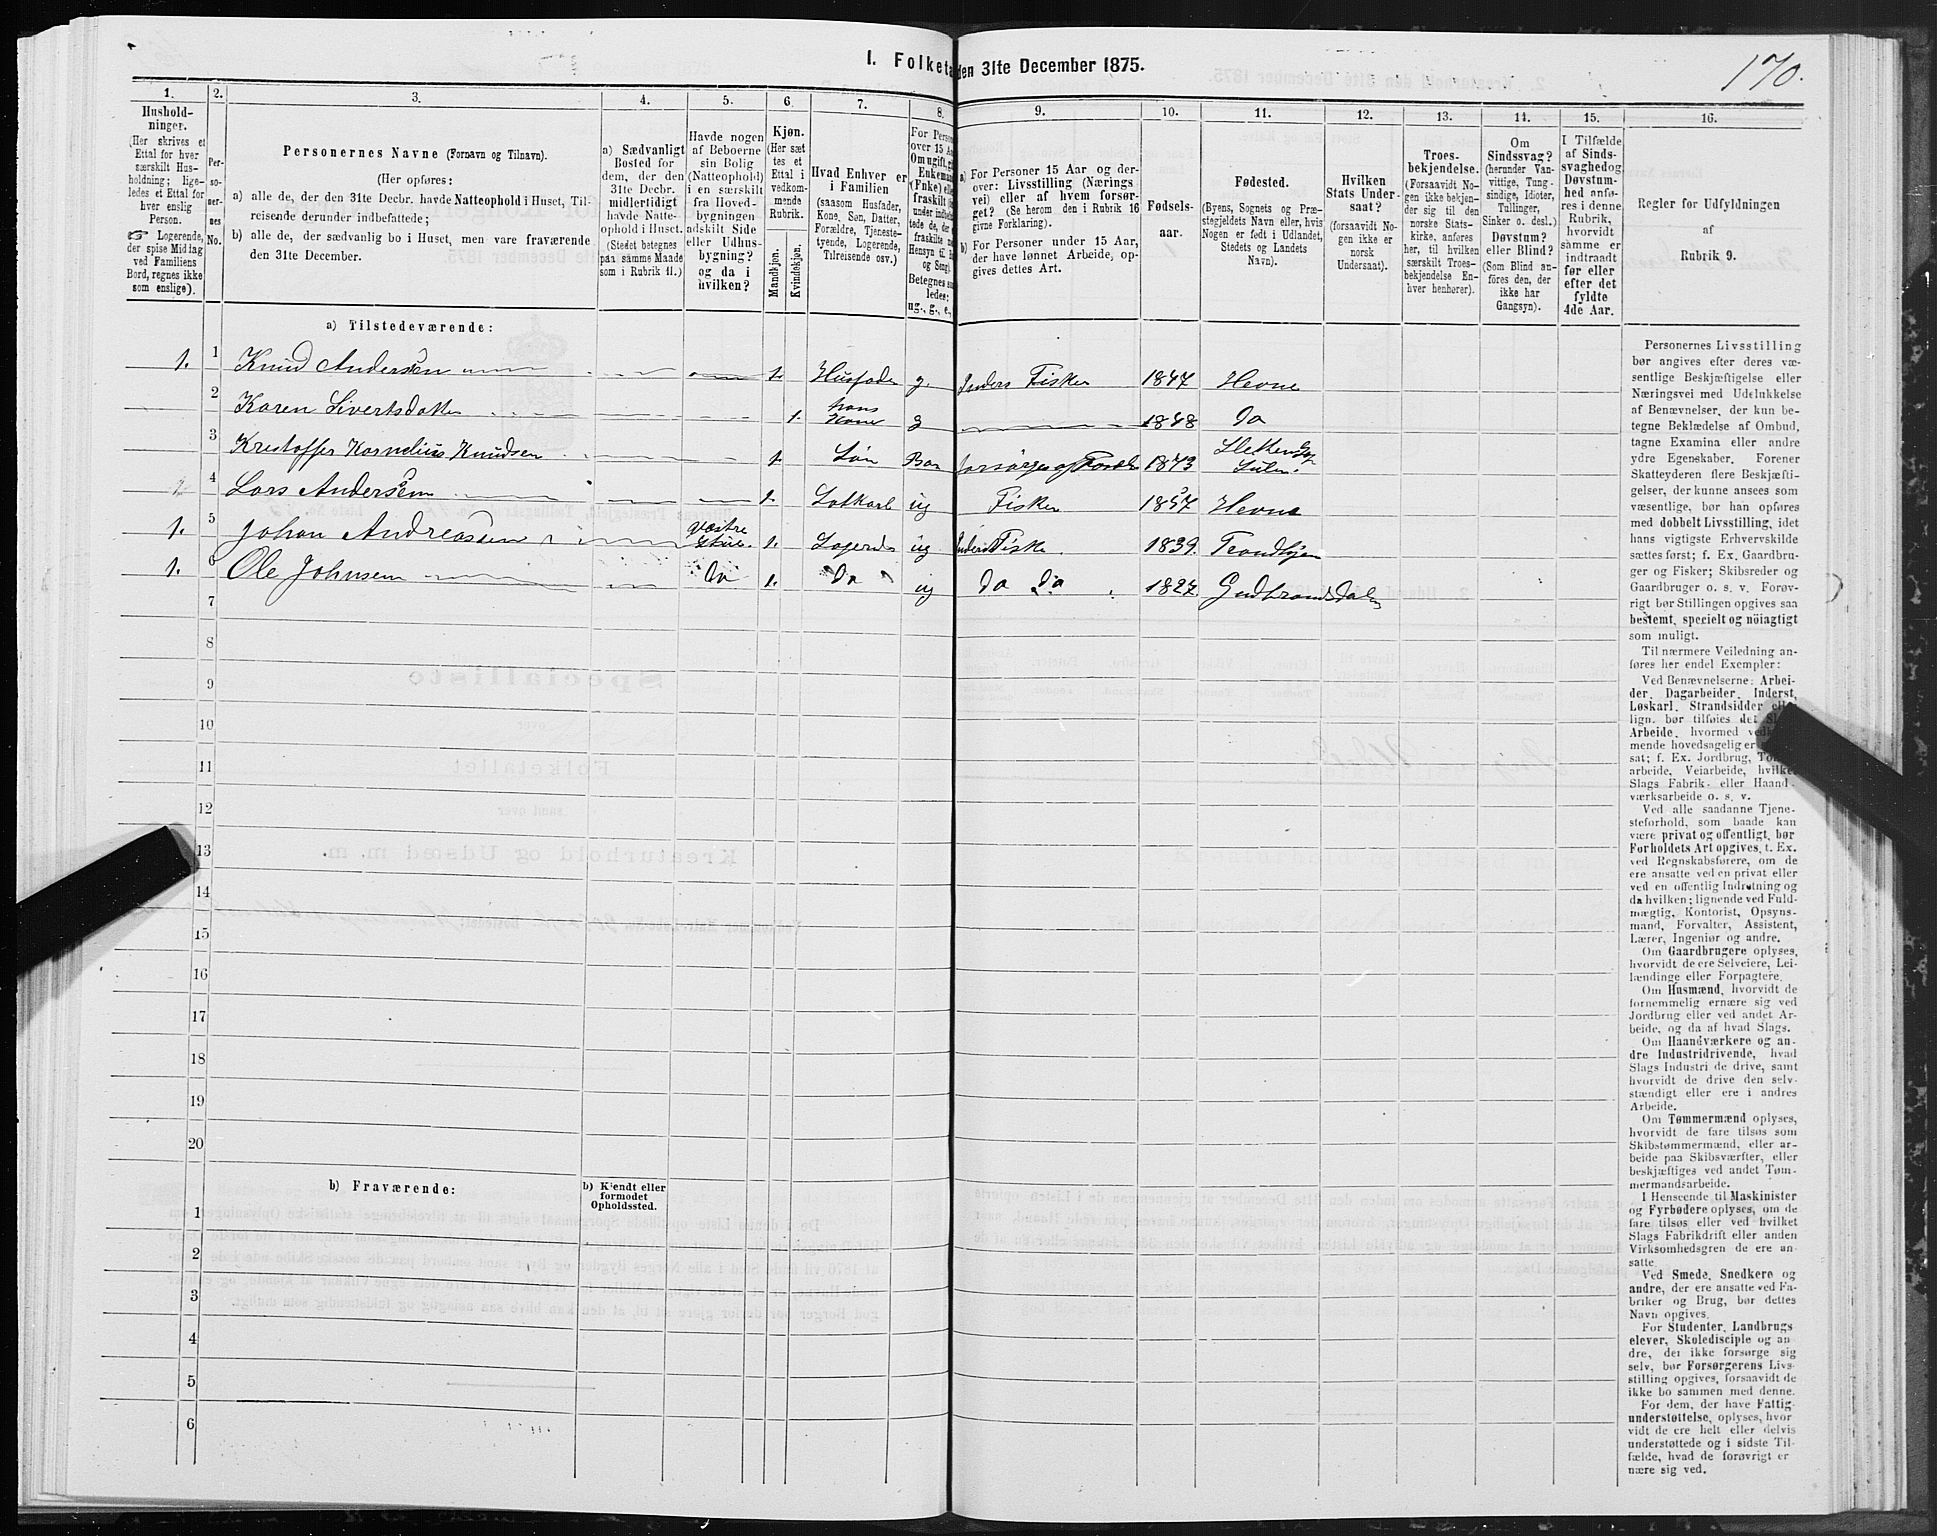 170.
I. Folketæ
den 31te December 1875.
1. 2. 3. 4. 5. 6. 7. 8. 9. 10. 11. 12. 13. 14. 15. 16.
Hushold-
ninger.
(Her skrives et
Ettal for hver
særskilt Hus-
holdning; lige-
ledes et Ettal for
hver enslig
Person.
☞ Logerende,
der spise Middag
ved Familiens
Bord, regnes ikke
som enslige).
Per-
so-
ner-
nes
No.
Personernes Navne (Fornavn og Tilnavn).
(Her opføres:
a) alle de, der den 31te Decbr. havde Natteophold i Huset, Til-
reisende derunder indbefattede;
b) alle de, der sædvanlig bo i Huset, men vare fraværende
den 31te December.
a) Sædvanligt
Bosted for
dem, der den
31te Decbr.
midlertidigt
havde Natte-
ophold i Huset.
(Stedet betegnes
paa samme Maade
som i Rubrik 11.)
Havde nogen
af Beboerne
sin Bolig
(Natteophold)
i en særskilt
fra Hoved-
bygningen
adskilt Side
eller Udhus-
bygning?
og da i
hvilken?
Kjøn.
(Her sæt
tes et
Ettal i
vedkom-
mende
Rubrik.
Mandkjøn.
Kvindekjøn.
Hvad Enhver er
i Familien
(saasom Husfader,
Kone, Søn, Datter,
Forældre, Tjeneste-
tyende, Logerende,
Tilreisende osv.)
For Person
over 15 Aa
Om ugift, gi
Enkeman
(Enke) elle
fraskilt
under indbe
tede de, der
fraskilte
Hensyn til B
og Seng)
Betegnes sa
ledes:
ug., g., e.,
a) For Personer 15 Aar og der-
over: Livsstilling (Nærings
vei) eller af hvem forsør-
get? (Se herom den i Rubrik 16
givne Forklaring).
b) For Personer under 15 Aar,
der have lønnet Arbeide, op-
gives dettes Art.
Fødsels-
aar.
Fødested.
(Byens, Sognets og Præ-
stegjeldets Navn eller, hvis
Nogen er født i Udlandet,
Stedets og Landets
Navn).
Hvilken
Stats Under-
saat?
(forsaavidt No-
gen ikke er
norsk
Undersaat).
Troes-
bekjendelse.
(Forsaavidt No-
gen ikke bekjen-
der sig til den
norske Stats-
kirke, anføres
her, til hvilken
særskilt Troes-
bekjendelse En-
hver henhører).
Om
Sindssvag?
(herunder Van-
vittige, Tung-
sindige, Idioter,
Tullinger,
Sinker o. desl.)
Døvstum?
eller Blind?
(Som Blind an-
føres den, der
ikke har
Gangsyn).
I Tilfælde
af Sinds-
svaghed og
Døvstum-
hed anfø-
res i denne
Rubrik,
hvorvidt
samme er
indtraadt
før eller
efter det
fyldte
4de Aar.
Regler for Udfyldningen
af
Rubrik 9.
a) Tilstedeværende:
1. 1 Knud Andersen 1. Husfader g. Inders Fisker 1847 Hevne
2 Karen Sivertsdatter 1. hans Kone g 1848 do
3 Kristoffer Kornelius Knudsen 1. Søn Bar forsørges af 1873
4 Lars Andersen 1. Loskarl ug Fisker 1857 Hevne
1. 5 Johan Andreassen vestre 1. Logerde ug Inderst Fiske 1839. Trondhjem
1. 6 Ole Johnsen do 1. do ug do do 1827. Gudbrandsdalen
7
8
9
10
11
12
13
14
15
16
17
18
19
20
b) Fraværende:
b) Kjendt eller
formodet
Opholdssted.
1
2
3
4
5
6
Personernes Livsstilling
bør angives efter deres væ-
sentlige Beskjæftigelse eller
Næringsvei med Udelukkelse
af Benævnelser, der kun be-
tegne Beklædelse af Ombud,
tagne Examina eller andre
ydre Egenskaber. Forener
Skatteyderen flere Beskjæfti-
gelser, der kunne ansees som
væsentlige, bør han opføres
med dobbelt Livsstilling, idet
hans vigtigste Erhvervskilde
sættes først; f. Ex. Gaardbru-
ger og Fisker; Skibsreder og
Gaardbruger o. s. v. Forøv-
rigt bør Stillingen opgives saa
bestemt, specielt og nöiagtigt
som muligt.
Til nærmere Veiledning an-
føres her endel Exempler:
Ved Benævnelserne: Arbei-
der, Dagarbeider, Inderst,
Løskarl, Strandsidder eller
lign. bør tilføies det Slags
Arbeide, hvormed vedkom-
mende hovedsagelig er
sat; f. Ex. Jordbrug,
arbeide, Veiarbeide, hvilket
Slags Fabrik- eller Haand-
værksarbeide o. s. v.
Ved alle saadanne Tjene-
steforhold, som baade kan
være privat og offentligt, bør
Forholdets Art opgives, t. Ex.
ved Regnskabsførere, om de
ere ansatte ved en privat eller
ved en offentlig Indretning og
da hvilken; lignende ved Fuld-
mægtig, Kontorist, Opsyns-
mand, Forvalter, Assistent,
Lærer, Ingeniør og andre.
Om Gaardbrugere oplyses,
hvorvidt de ere Selveiere, Lei-
lændinge eller Forpagtere.
Om Husmænd, hvorvidt de
fornemmelig ernære sig ved
Jordbrug eller ved andet Ar-
beide, og da af hvad Slags.
Om Haandværkere og an-
dre Industridrivende, hvad
Slags Industri de drive, samt
hvorvidt de drive den selv-
stændigt eller ere i andres
Arbeide.
Om Tømmermænd oplyses,
hvorvidt de fare tilsøs som
Skibstømmermænd, eller ar-
beide paa Skibsværfter, eller
beskjæftiges ved andet Tøm-
mermandsarbeide.
I Henseende til Maskinister
og Fyrbødere oplyses, om de
fare tilsøs eller ved hvilket
Slags Fabrikdrift eller anden
Virksomhedsgren de ere an-
satte.
Ved Smede, Snedkere og
andre, der ere ansatte ved Fa-
briker og Brug, bør dettes
Navn opgives.
For Studenter, Landbrugs
elever, Skoledisciple og an
dre, der ikke forsørge sig
selv, bør Forsørgerens Livs-
stilling opgives, forsaavidt de
ikke bo sammen med denne.
For dem, der have Fattig-
understøttelse, oplyses, hvor
vidt de ere helt eller delvis
understøttede og i sidste Til-
fælde, hvad de forøvrigt er
nære sig ved.